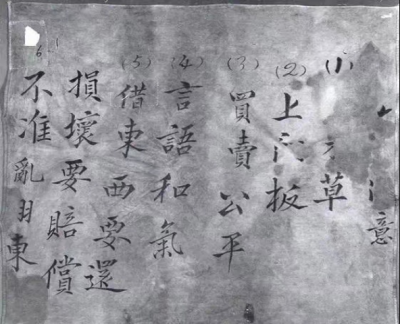 意
(1) 草
(2) 上門板
(3) 買賣公平
(4) 言語和氣
(5) 借東西要還
損壞要賠償
不准亂用東